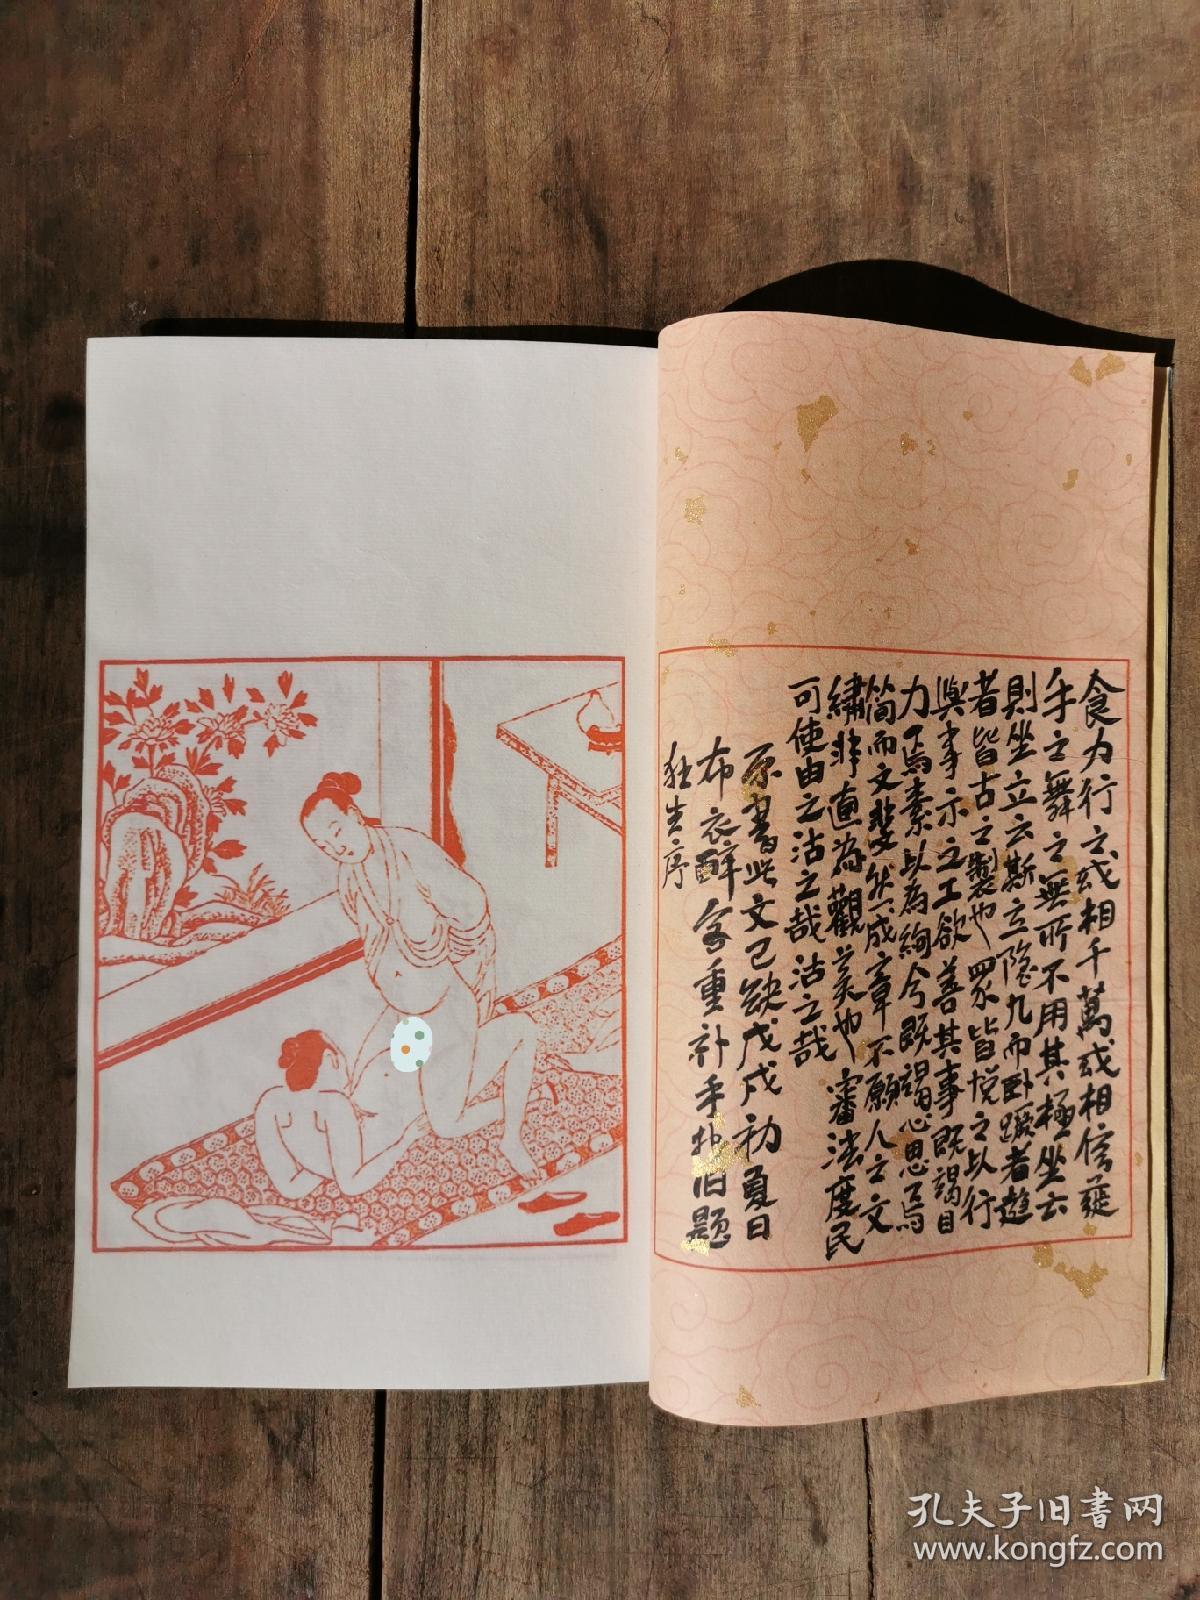 食力行之或相千萬或相倍蓰
手之舞之無所不用其極坐云
則坐立云斯立隐九而卧蹶者趋
者皆古之製也眾皆悦之以行
與事示之工欲善其事既竭目
力焉素以為絢今既竭心思焉
简而文斐然成章不願人之文
繡非直為觀美也審法度民
可使由之沽之哉沽之哉
原書此文已缺戊戌初夏日
布衣醉客重补手抄旧题
狂生序
孔夫子旧书网
www.kongfz.com